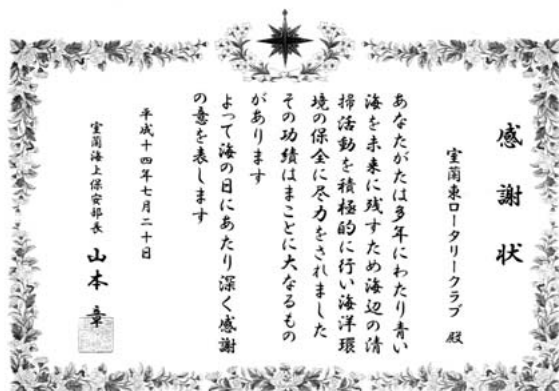 感謝状
室蘭東ロータリークラブ 殿
あなたがたは多年にわたり青い
海を未来に残すため海辺の清
掃活動を積極的に行い海洋環
境の保全に尽力をされました
その功績はまことに大なるもの
があります
よって海の日にあたり深く感謝
の意を表します
平成十四年七月二十日
室蘭海上保安部長 山本 章